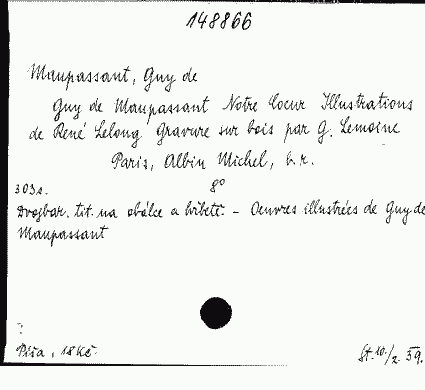 148866
Maupassant, Guy de
Guy de Maupassant Notre Coeur Illustrations
de René Lelong Gravure sur bois par G. Lemoine
Paris, Albin Michel, b.r.
8°
303 s.
Dvojbar. tit. na obálce a hřbetě. - Oeuvres illustrées de Guy de
Maupassant
Píša, 18 Kč.
St. 10/2. 39.